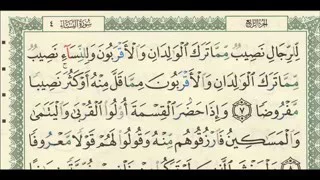 الجزء الرابع
سورة النساء
٤
لِّلرِّجَالِ نَصِيبٌ مِّمَّا تَرَكَ الْوَالِدَانِ وَالْأَقْرَبُونَ وَلِلنِّسَاءِ نَصِيبٌ
مِّمَّا تَرَكَ الْوَالِدَانِ وَالْأَقْرَبُونَ مِمَّا قَلَّ مِنْهُ أَوْ كَثُرَ نَصِيبًا
مَّفْرُوضًا ٧ وَإِذَا حَضَرَ الْقِسْمَةَ أُولُوا الْقُرْبَىٰ وَالْيَتَامَىٰ
وَالْمَسَاكِينُ فَارْزُقُوهُم مِّنْهُ وَقُولُوا لَهُمْ قَوْلًا مَّعْرُوفًا